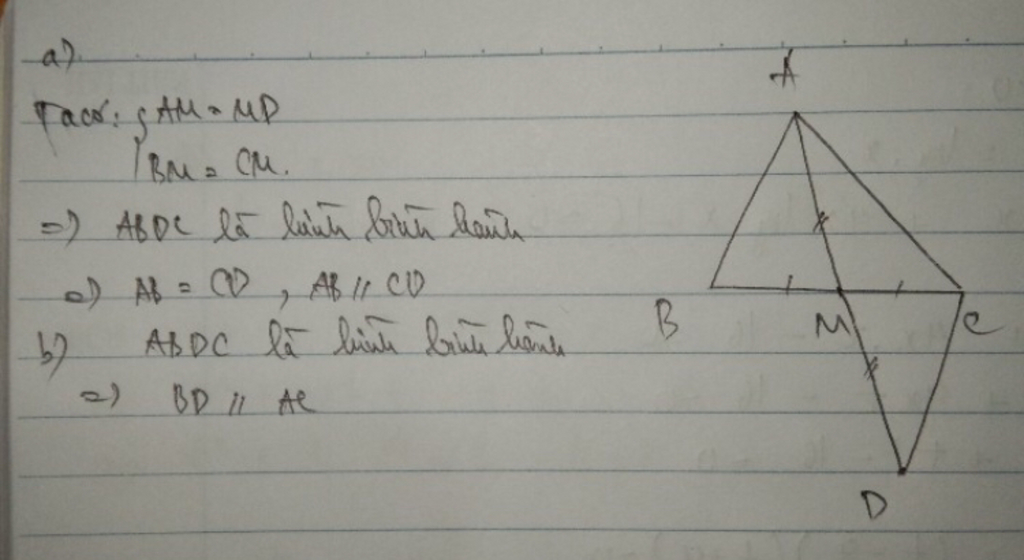 a)
Ta có: { AM = MD
BM = CM.
=) ABDC là hình bình hành
=) AB = CD , AB // CD
b) ABDC là hình bình hành
=) BD // AC
A
B M C
D